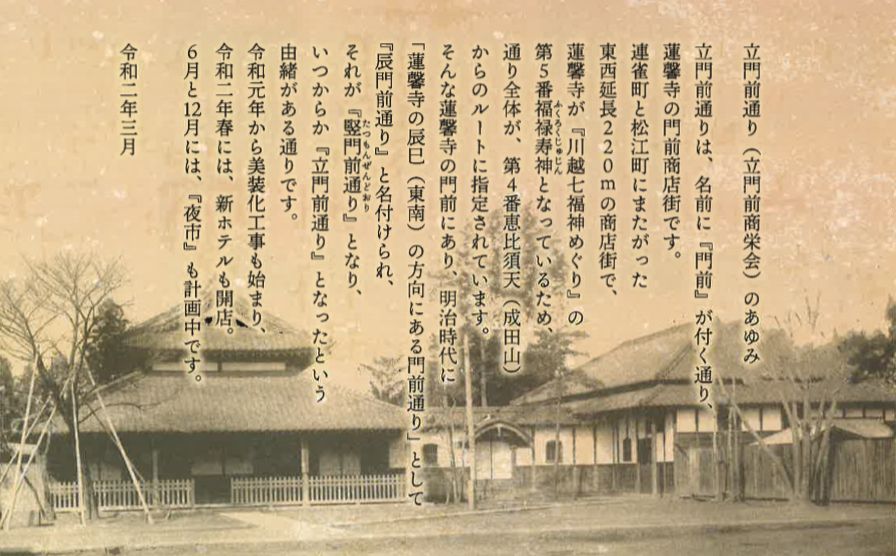 立門前通り（立門前商栄会）のあゆみ
立門前通りは、名前に『門前』が付く通り、
蓮馨寺の門前商店街です。
連雀町と松江町にまたがった
東西延長220mの商店街で、
蓮馨寺が『川越七福神めぐり』の
第5番福禄寿神となっているため、
ふくろくじゅじん
通り全体が、第4番恵比須天（成田山）
からのルートに指定されています。
そんな蓮馨寺の門前にあり、明治時代に
「蓮馨寺の辰巳（東南）の方向にある門前通り」として
『辰門前通り』と名付けられ、
それが『竪門前通り』となり、
たつもんぜんどおり
いつからか『立門前通り』となったという
由緒がある通りです。
令和元年から美装化工事も始まり、
令和二年春には、新ホテルも開店。
6月と12月には、『夜市』も計画中です。
令和二年三月